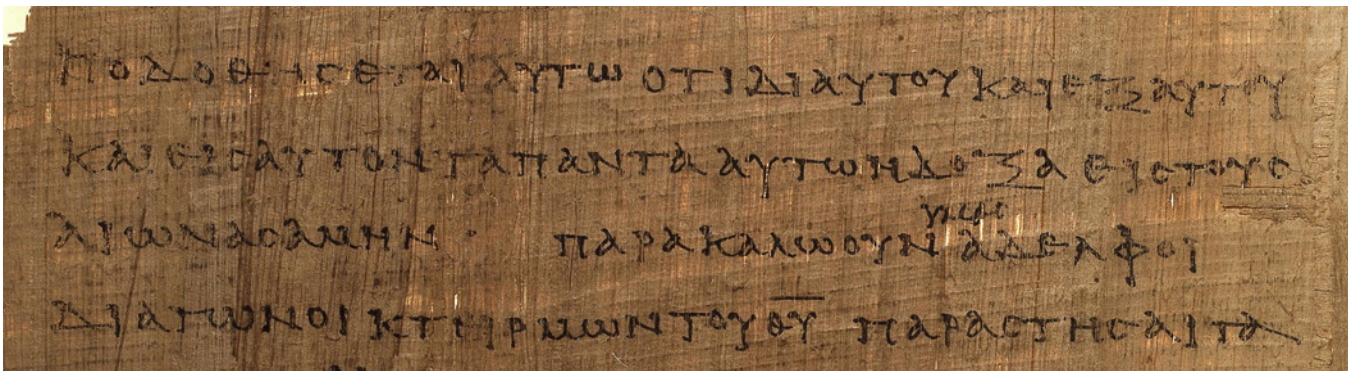 ΠΟΔΟΘΗϹΕΤΑΙ ΑΥΤΩ ΟΤΙ ΔΙ ΑΥΤΟΥ ΚΑΙ ΕΞ ΑΥΤΟΥ
ΚΑΙ ΕΙϹ ΑΥΤΟΝ ΤΑ ΠΑΝΤΑ ΑΥΤΩ Η ΔΟΞΑ ΕΙϹ ΤΟΥϹ
ΑΙΩΝΑϹ ΑΜΗΝ · ΠΑΡΑΚΑΛΩ ΟΥΝ ΥΜΑϹ ΑΔΕΛΦΟΙ
ΔΙΑ ΤΩΝ ΟΙΚΤΕΙΡΜΩΝ ΤΟΥ Θ̅Υ̅ ΠΑΡΑϹΤΗϹΑΙ ΤΑ